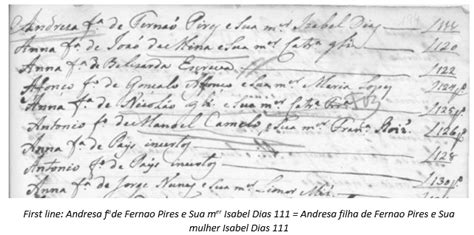 Andresa fª de Fernaõ Pirez e Sua mᵉʳ Isabel Dias 111
Anna fª de Joaõ da Mina e Sua mᵉʳ Catʳⁿᵃ 120
Anna fª de Belizarda Escrava 122
Afonso fª de Gonçalo Afonso e Sua mᵉʳ Maria Lopez 124
Anna fª de Nicolao e Sua mᵉʳ 125
Antonio fª de Manoel Camelo, e Sua mᵉʳ Franᶜᵃ Roiz 126
Anna fª de Pays incertos 128
Antonio fª de Pays incertos
Anna fª de Jorge Nunez e Sua mᵉʳ Lianor 130
First line: Andresa fª de Fernao Pires e Sua mᵉʳ Isabel Dias 111 = Andresa filha de Fernao Pires e Sua
mulher Isabel Dias 111